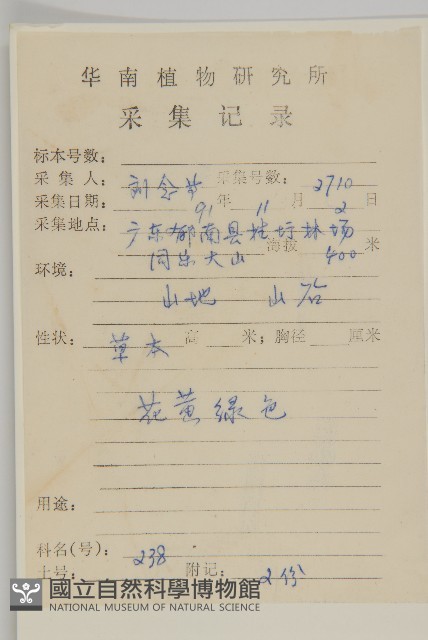 华南植物研究所
采集记录
标本号数：
采集人：刘念 采集号数：2710
采集日期：91年11月2日
采集地点：广东郁南县桂圩林场
同乐大山 海拔400米
环境：
山地 山谷
性状：草本 高 米；胸径 厘米
花黄绿色
用途：
科名(号)：238
土号： 附记：2份
國立自然科學博物館
NATIONAL MUSEUM OF NATURAL SCIENCE